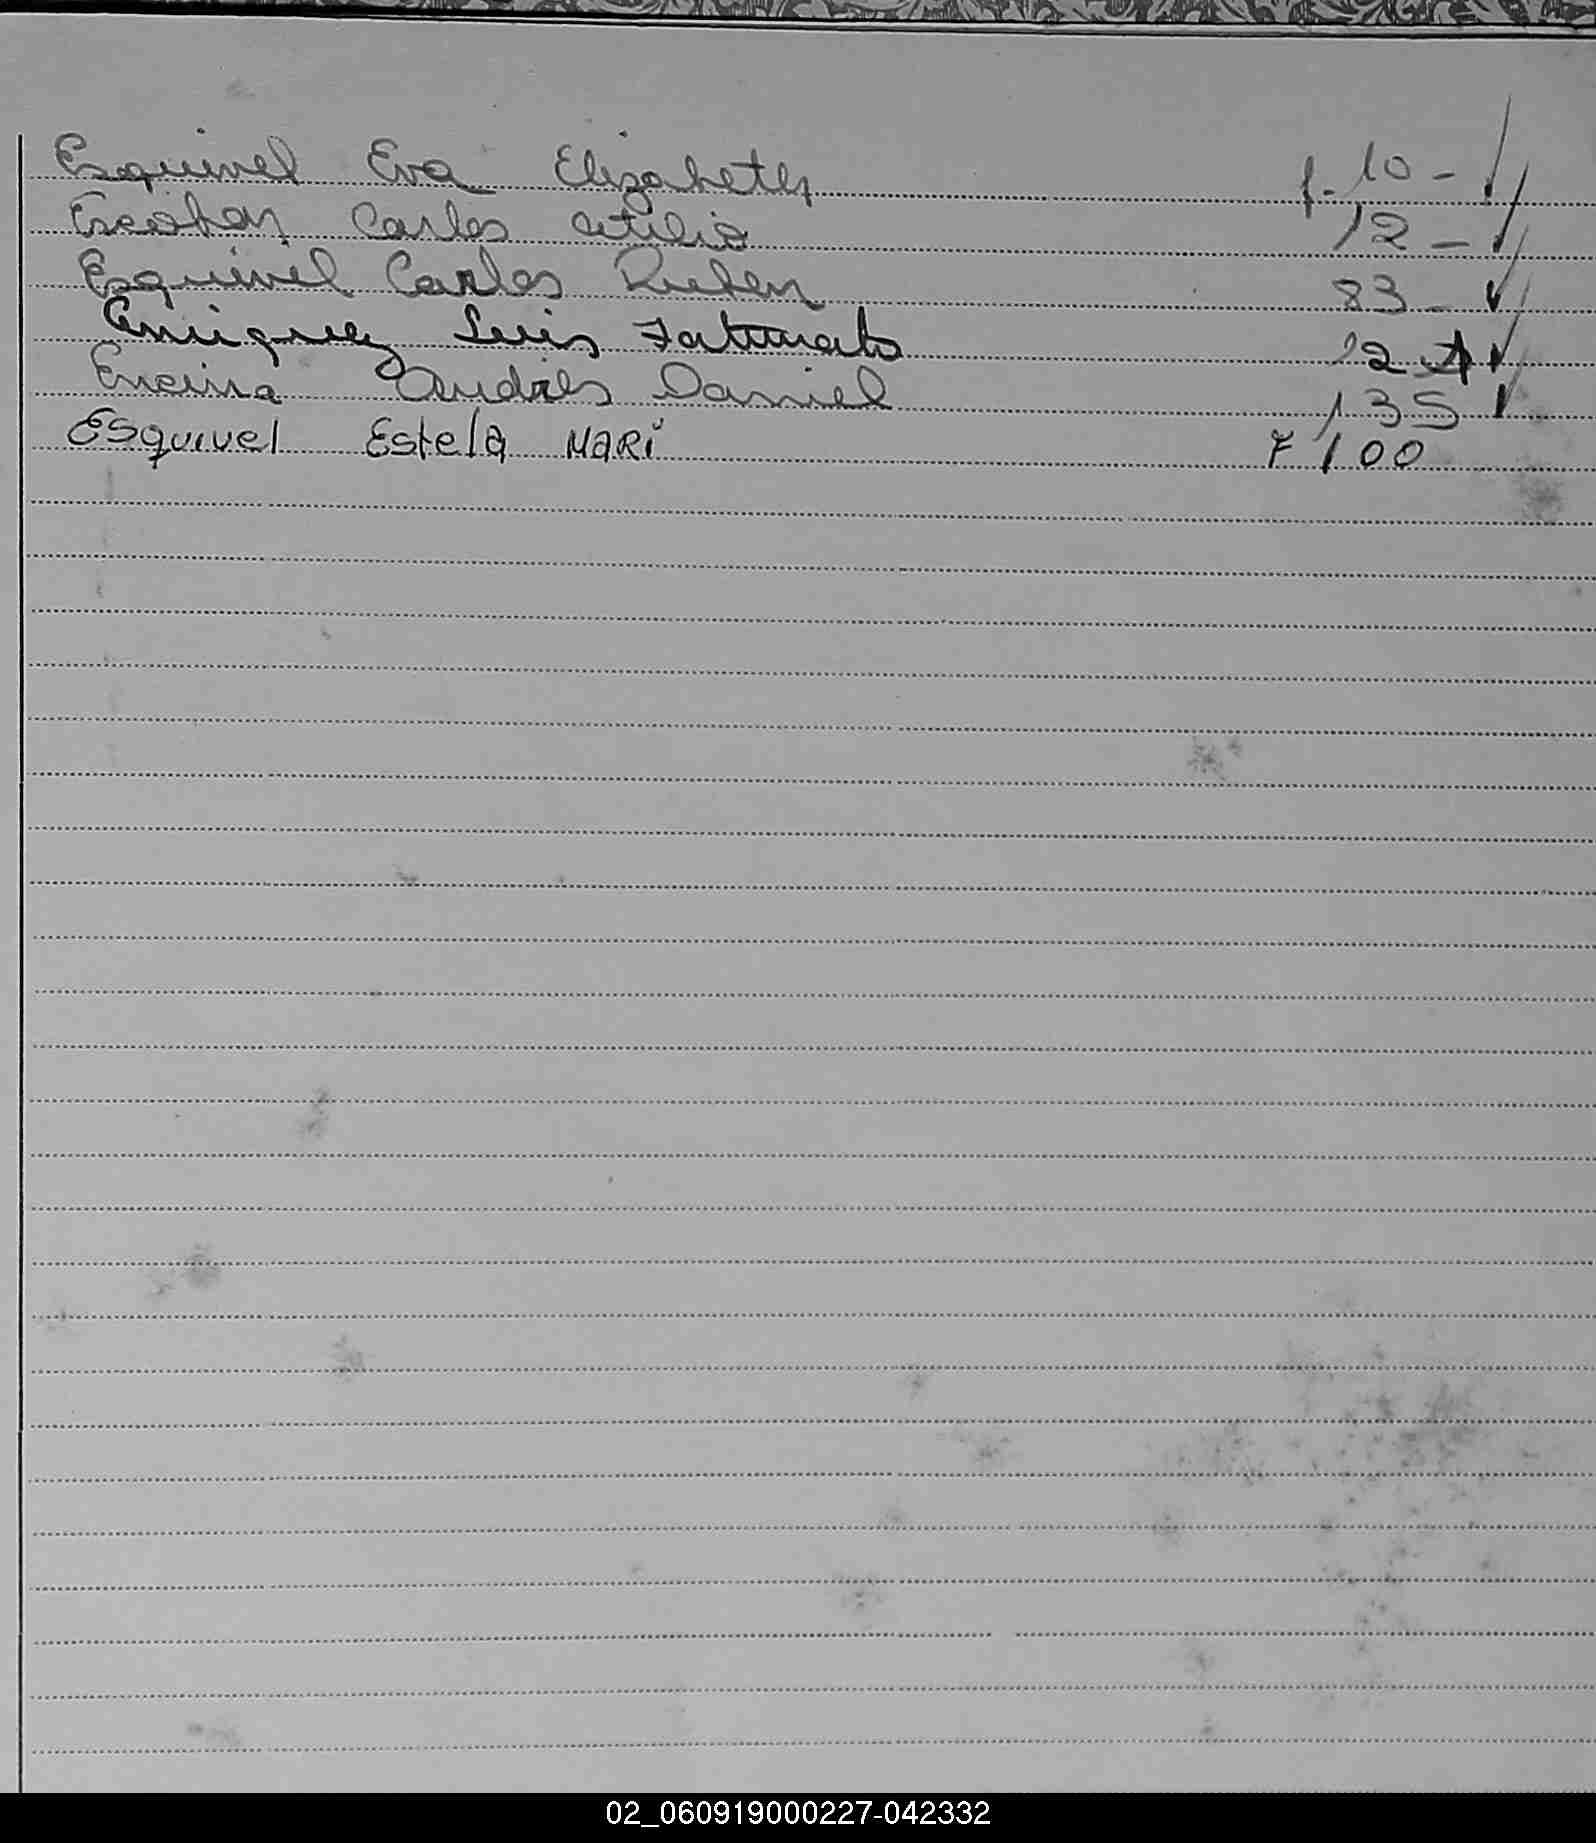 Esquivel Eva Elizabeth f. 10 -
Escobar Carlos Atilio 12 -
Esquivel Carlos Ruben 83 -
Enriquez Luis Fortunato 12
Encina Andrés Daniel 135
Esquivel Estela Mari F 100
02_060919000227-042332